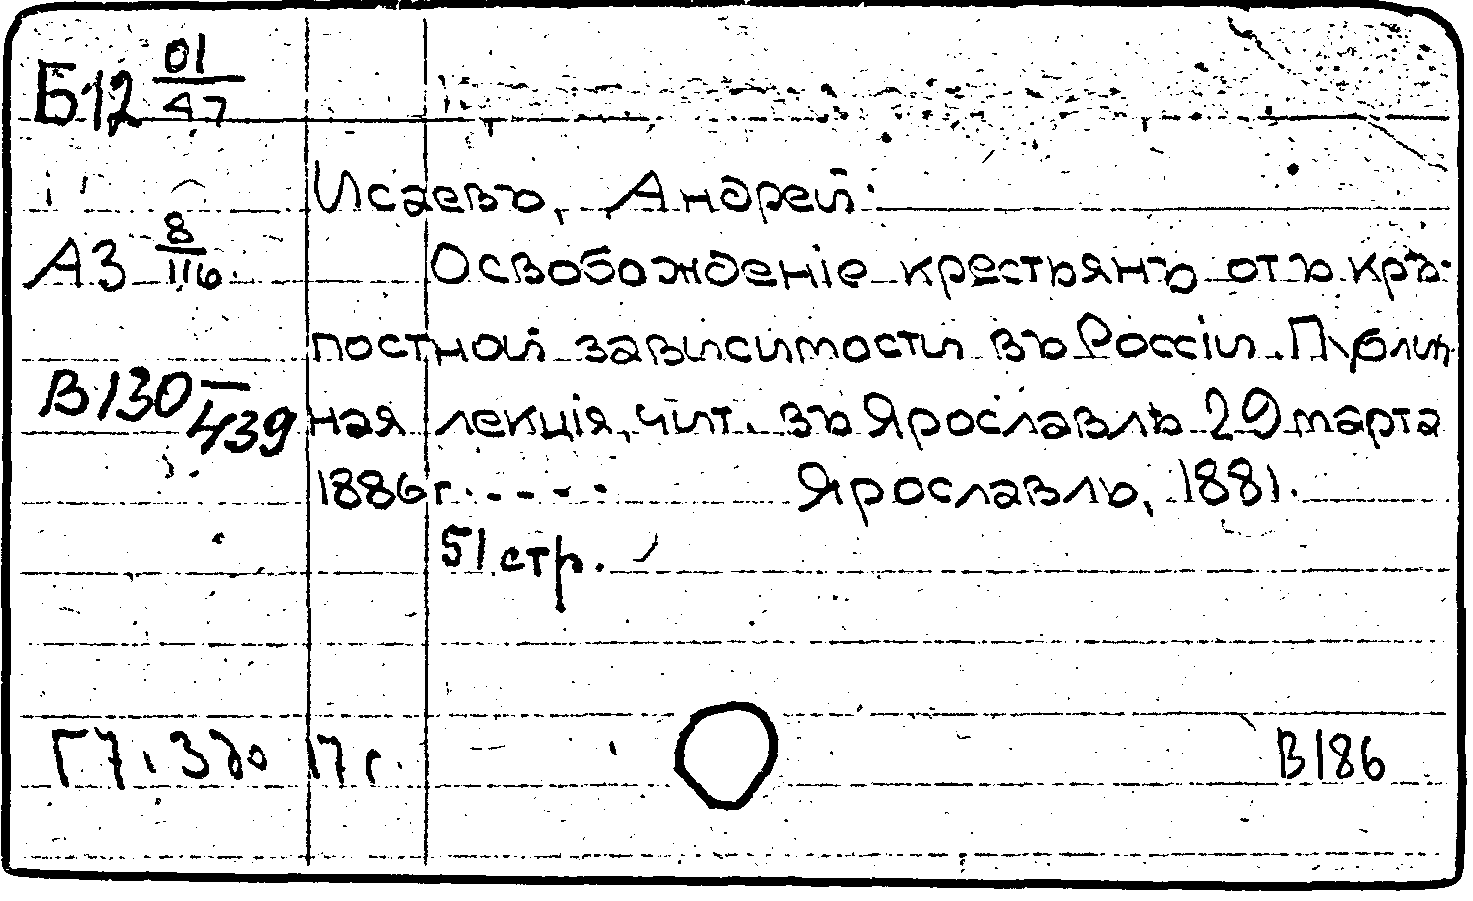 Б12 01/47
Исаевъ, Андрей.
А3 8/116.
Освобожденіе крестьянъ отъ крѣ-
постной зависимости въ Россіи. Публич-
В130 –/439
ная лекція, чит. въ Ярославлѣ 29 марта
1886 г. - - - - Ярославль, 1881.
51 стр.
Г7. 3до 17 с.
В186